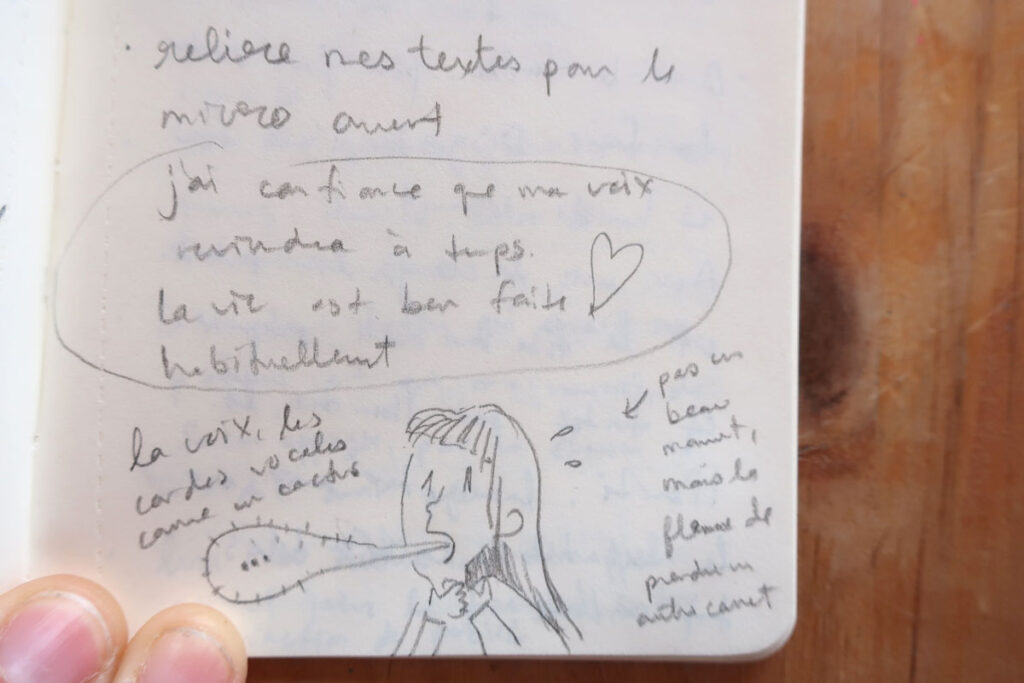 · relire mes textes pour le
micro ouvert
j'ai confiance que ma voix
reviendra à temps.
la vie est bien faite
habituellement
la voix, les
cordes vocales
comme un cactus
...
pas un
beau
moment,
mais la
flemme de
prendre un
autre carnet